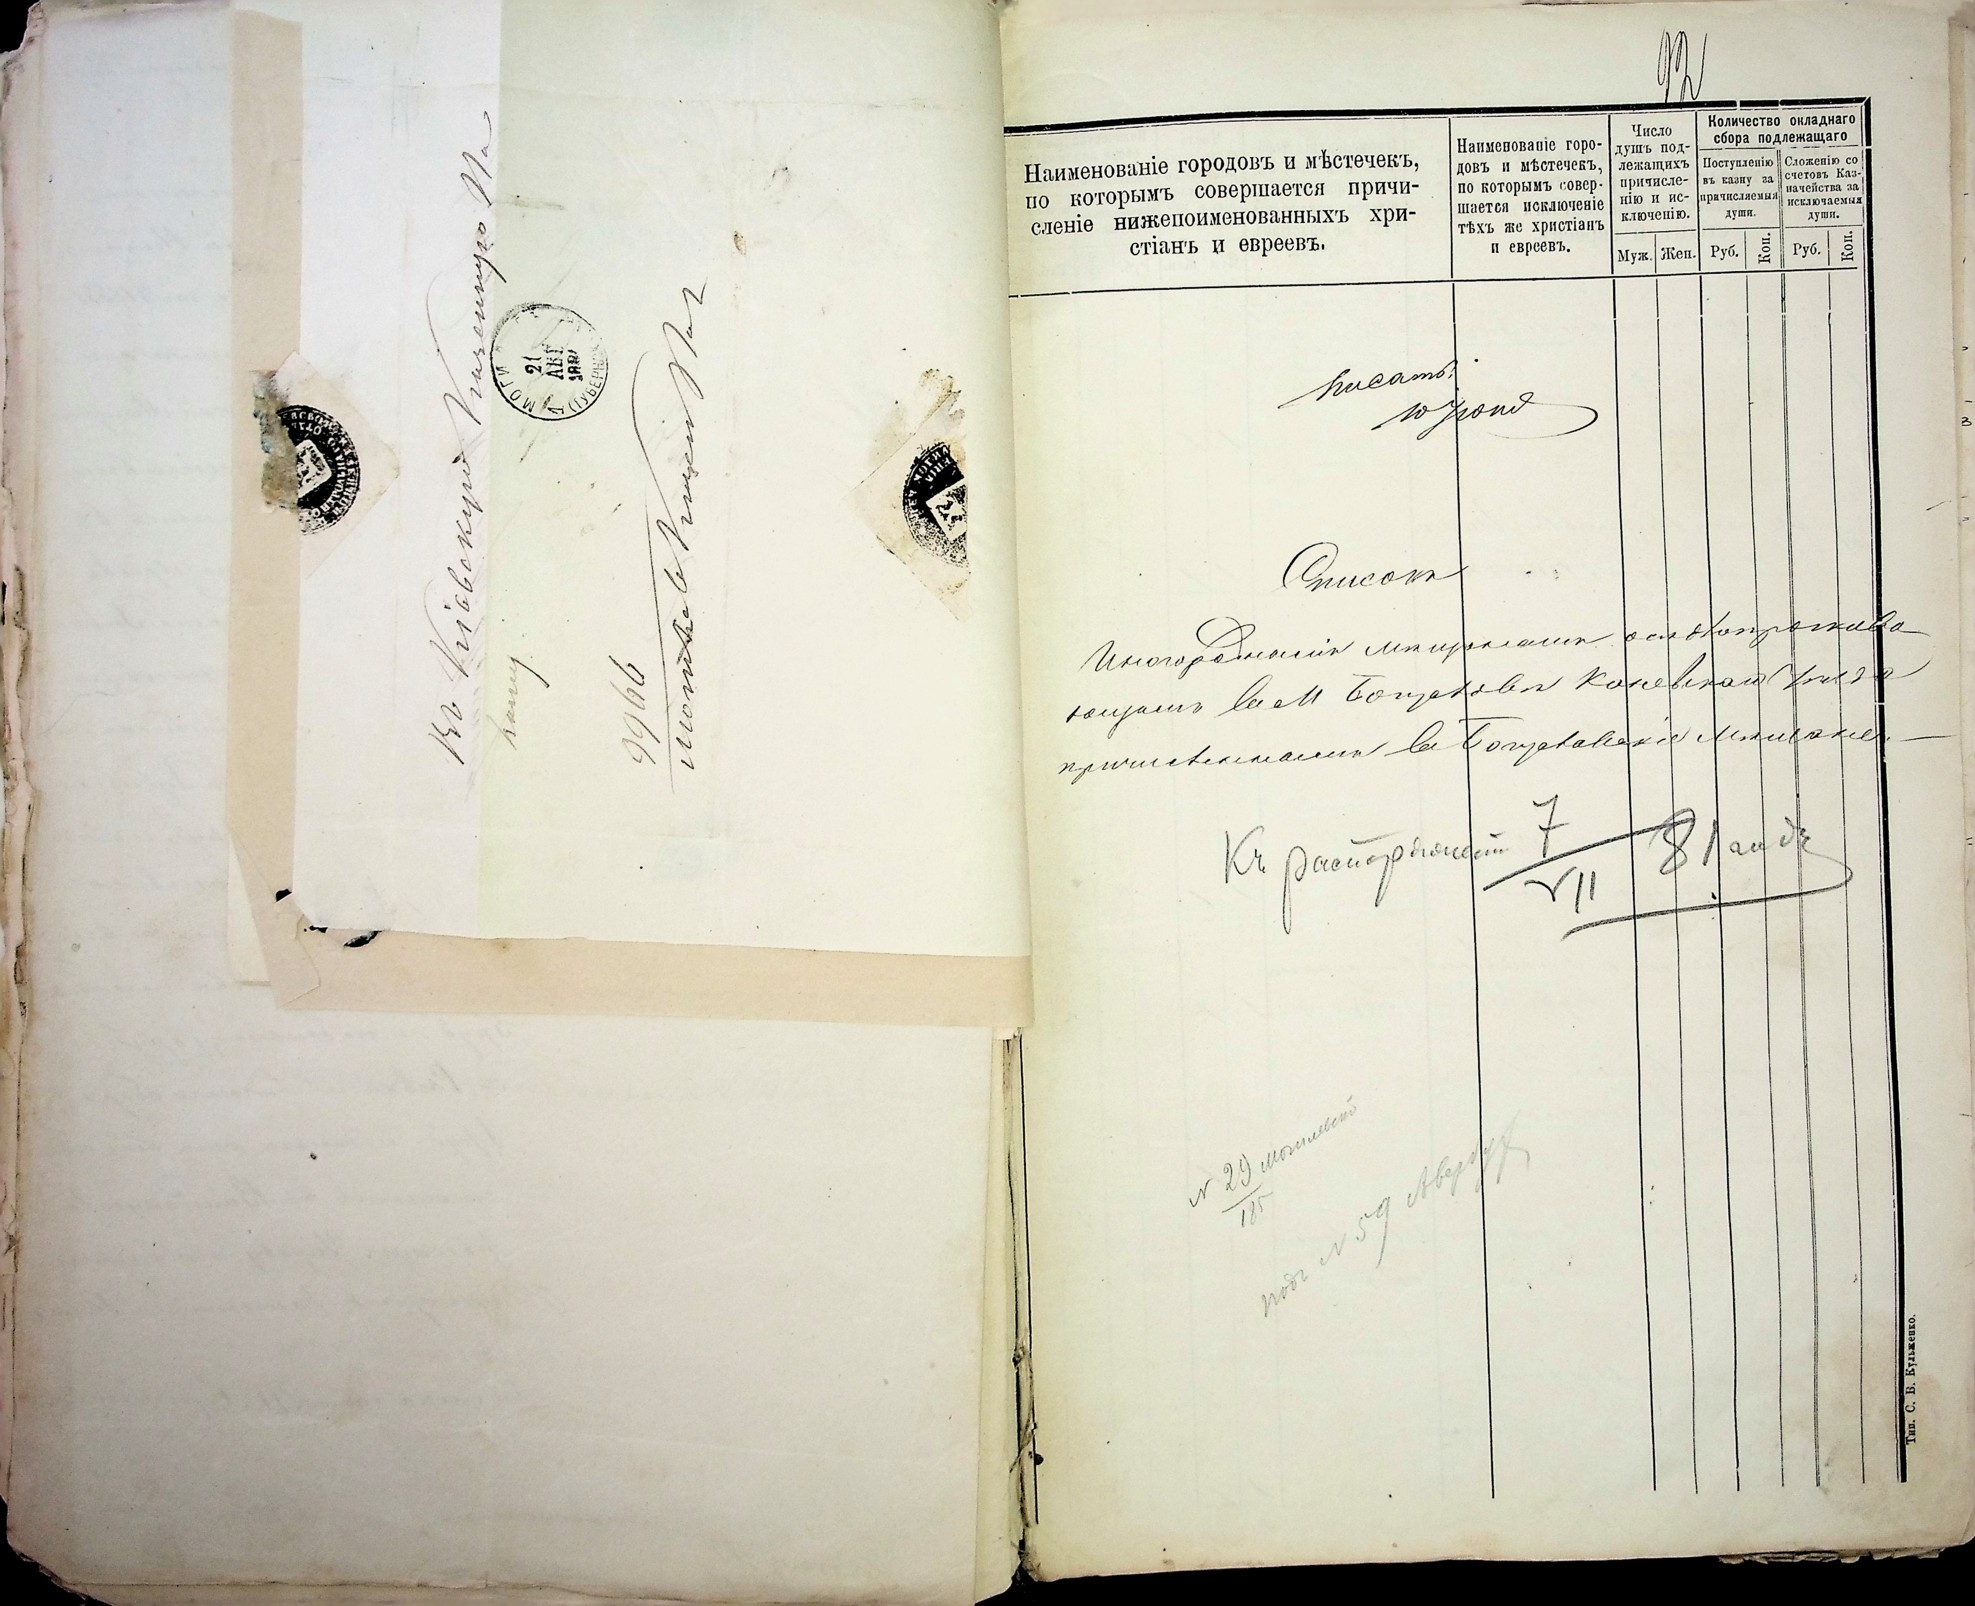 Въ Кіевскую Казенную Па
лату.
9966
МОГИЛ
21
АВГ
ГУБЕРН
92
Наименованіе городовъ и мѣстечекъ,
по которымъ совершается причи-
сленіе нижепоименованныхъ хри-
стіанъ и евреевъ.
Наименованіе горо-
довъ и мѣстечекъ,
по которымъ совер-
шается исключеніе
тѣхъ же христіанъ
и евреевъ.
Число
душъ под-
лежащихъ
причисле-
нію и ис-
ключенію.
Муж. Жен.
Количество окладнаго
сбора подлежащаго
Поступленію
въ казну за
причисляемыя
души.
Руб. Коп.
Сложенію со
счетовъ Каз-
начейства за
исключаемыя
души.
Руб. Коп.
писать:
Списокъ
Иногороднымъ мещанамъ осѣдлопрожива
ющимъ въ М Богуславѣ Каневскаго уѣзда
причисленнымъ въ Богуславскіе Мещане.
Къ распоряженію 7/VII 81 года
N 29/185 Могилевской
подъ N 59 Авербух
Тип. С. В. Кульженко.